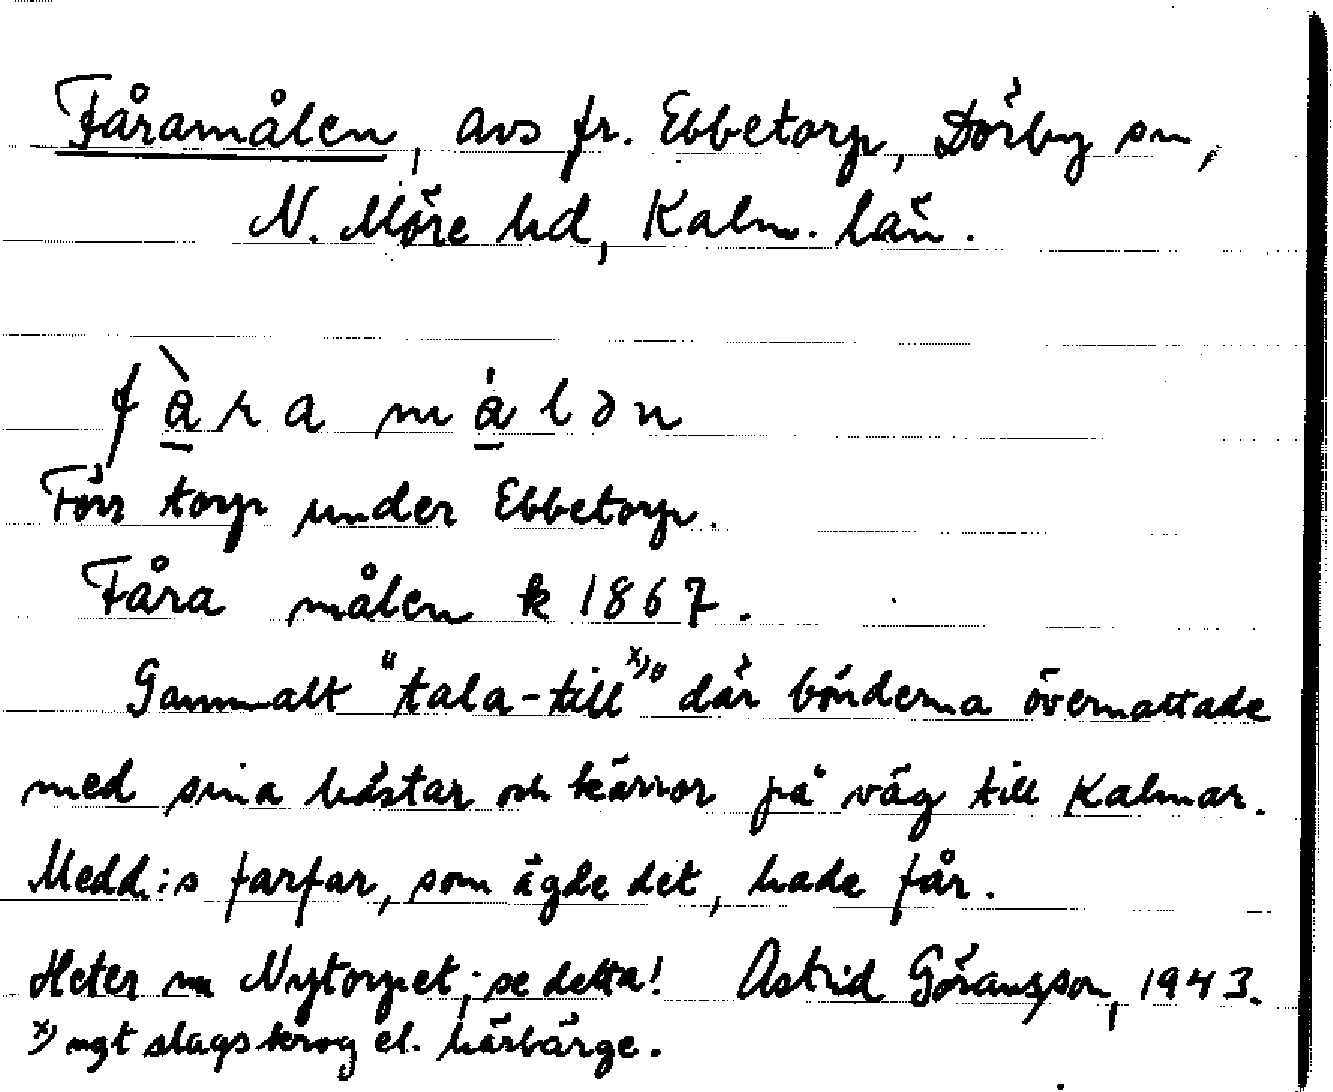 Fåramålen, avs fr. Ebbetorp, Dörby sn,
N. Möre hd, Kalm. län.
fàra málən
Förr torp under Ebbetorp.
Fåra målen k 1867.
Gammalt "tala-till x)" där bönderna övernattade
med sina hästar och kärror på väg till Kalmar.
Medd:s farfar, som ägde det, hade får.
Heter nu Nytorpet; se detta! Astrid Göransson, 1943.
x) ngt slags krog el. härbärge.